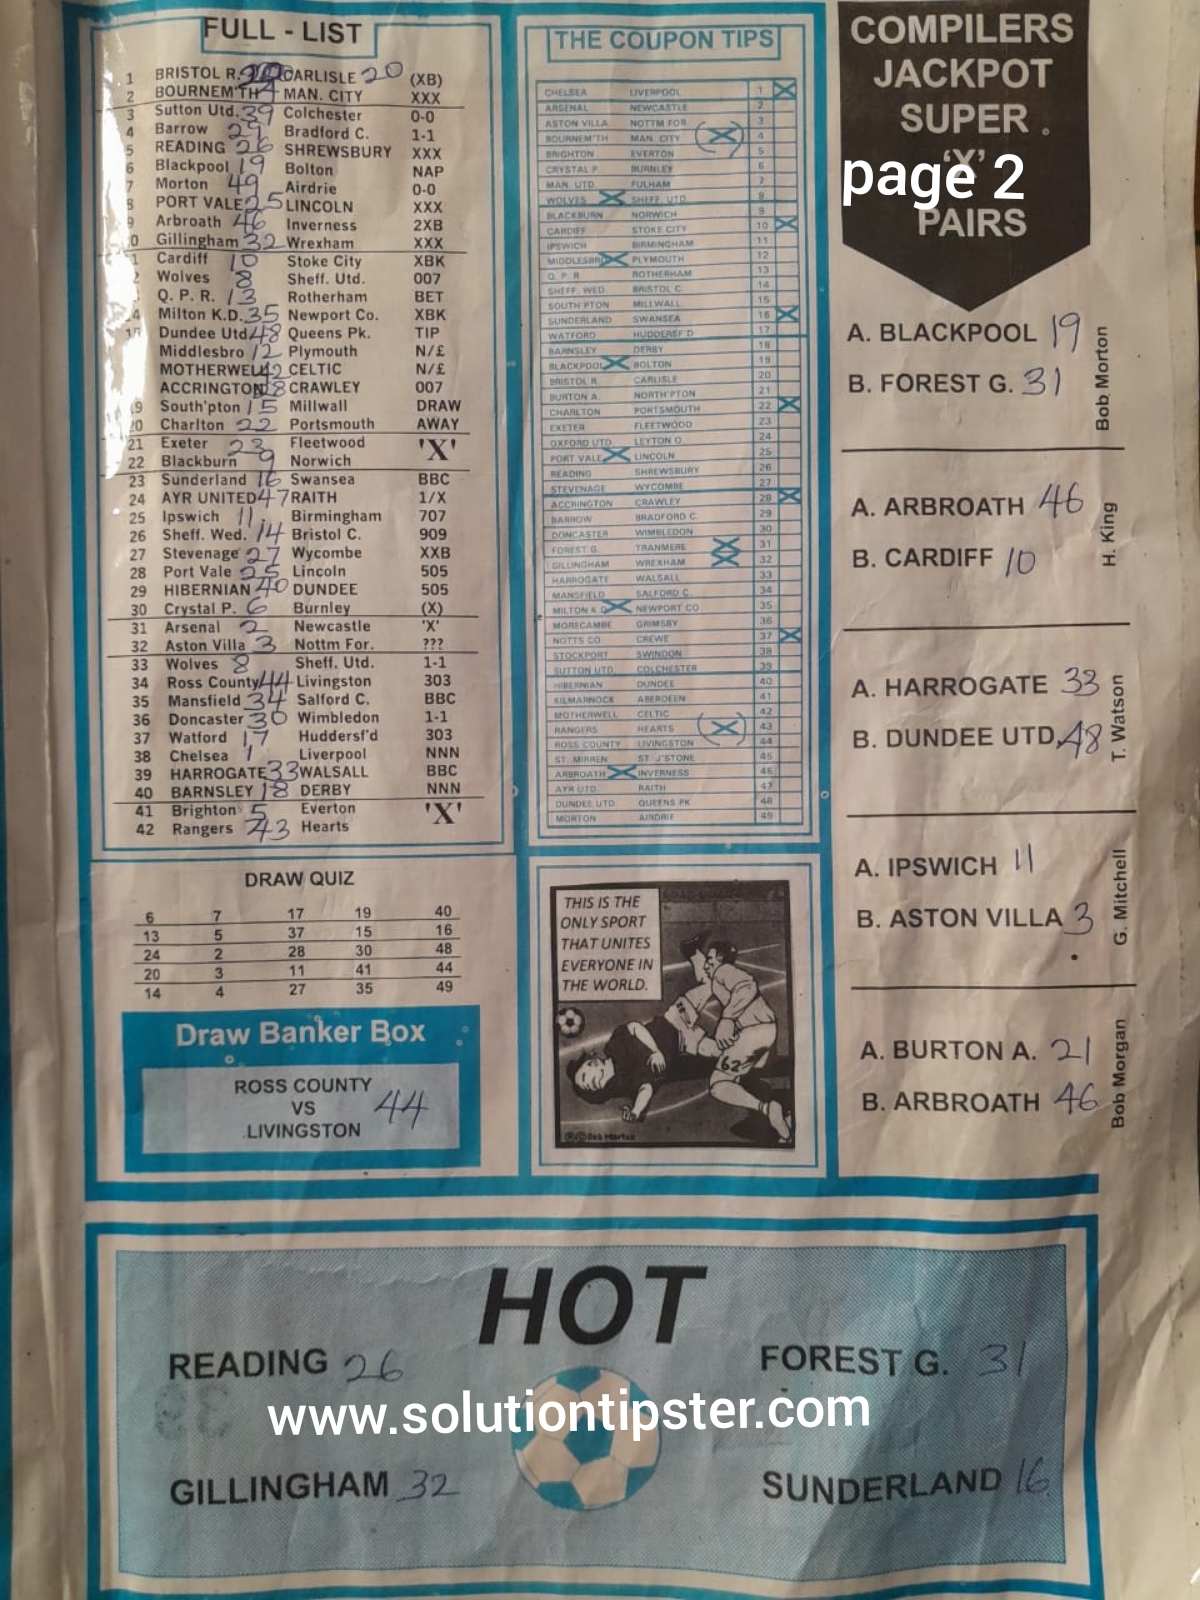 FULL - LIST
1 BRISTOL R. CARLISLE 20 (XB)
2 BOURNEM'TH 4 MAN. CITY XXX
3 Sutton Utd. 39 Colchester 0-0
4 Barrow 29 Bradford C. 1-1
5 READING 26 SHREWSBURY XXX
6 Blackpool 19 Bolton NAP
7 Morton 49 Airdrie 0-0
8 PORT VALE 25 LINCOLN XXX
9 Arbroath 46 Inverness 2XB
0 Gillingham 32 Wrexham XXX
Cardiff 10 Stoke City XBK
Wolves 8 Sheff. Utd. 007
Q. P. R. 13 Rotherham BET
Milton K.D. 35 Newport Co. XBK
Dundee Utd 48 Queens Pk. TIP
Middlesbro 12 Plymouth N/£
MOTHERWELL 42 CELTIC N/£
ACCRINGTON 28 CRAWLEY 007
19 South'pton 15 Millwall DRAW
20 Charlton 22 Portsmouth AWAY
21 Exeter 23 Fleetwood 'X'
22 Blackburn 9 Norwich
23 Sunderland 16 Swansea BBC
24 AYR UNITED 47 RAITH 1/X
25 Ipswich 11 Birmingham 707
26 Sheff. Wed. 14 Bristol C. 909
27 Stevenage 27 Wycombe XXB
28 Port Vale 25 Lincoln 505
29 HIBERNIAN 40 DUNDEE 505
30 Crystal P. 6 Burnley (X)
31 Arsenal 2 Newcastle 'X'
32 Aston Villa 3 Nottm For. ???
33 Wolves 8 Sheff. Utd. 1-1
34 Ross County 44 Livingston 303
35 Mansfield 34 Salford C. BBC
36 Doncaster 30 Wimbledon 1-1
37 Watford 17 Huddersf'd 303
38 Chelsea 1 Liverpool NNN
39 HARROGATE 33 WALSALL BBC
40 BARNSLEY 18 DERBY NNN
41 Brighton 5 Everton 'X'
42 Rangers 43 Hearts
DRAW QUIZ
6 7 17 19 40
13 5 37 15 16
24 2 28 30 48
20 3 11 41 44
14 4 27 35 49
Draw Banker Box
ROSS COUNTY
VS 44
LIVINGSTON
THE COUPON TIPS
CHELSEA LIVERPOOL 1 X
ARSENAL NEWCASTLE 2
ASTON VILLA NOTTM FOR 3
BOURNEM'TH MAN. CITY (X) 4
BRIGHTON EVERTON 5
CRYSTAL P. BURNLEY 6
MAN. UTD. FULHAM 7
WOLVES X SHEFF. UTD. 8
BLACKBURN NORWICH 9
CARDIFF STOKE CITY 10 X
IPSWICH BIRMINGHAM 11
MIDDLESBRO X PLYMOUTH 12
Q. P. R. ROTHERHAM 13
SHEFF. WED. BRISTOL C. 14
SOUTH'PTON MILLWALL 15
SUNDERLAND SWANSEA 16 X
WATFORD HUDDERSF'D 17
BARNSLEY DERBY 18
BLACKPOOL X BOLTON 19
BRISTOL R. CARLISLE 20
BURTON A. NORTH'PTON 21
CHARLTON PORTSMOUTH 22 X
EXETER FLEETWOOD 23
OXFORD UTD. LEYTON O. 24
PORT VALE X LINCOLN 25
READING SHREWSBURY 26
STEVENAGE WYCOMBE 27
ACCRINGTON CRAWLEY 28 X
BARROW BRADFORD C. 29
DONCASTER WIMBLEDON 30
FOREST G. TRANMERE X 31
GILLINGHAM WREXHAM X 32
HARROGATE WALSALL 33
MANSFIELD SALFORD C. 34
MILTON K.D. X NEWPORT CO 35
MORECAMBE GRIMSBY 36
NOTTS CO CREWE 37 X
STOCKPORT SWINDON 38
SUTTON UTD. COLCHESTER 39
HIBERNIAN DUNDEE 40
KILMARNOCK ABERDEEN 41
MOTHERWELL CELTIC 42
RANGERS HEARTS (X) 43
ROSS COUNTY LIVINGSTON 44
ST. MIRREN ST. J'STONE 45
ARBROATH X INVERNESS 46
AYR UTD. RAITH 47
DUNDEE UTD. QUEENS PK 48
MORTON AIRDRIE 49
THIS IS THE
ONLY SPORT
THAT UNITES
EVERYONE IN
THE WORLD.
62
Bob Morton
COMPILERS
JACKPOT
SUPER
'X'
page 2
PAIRS
A. BLACKPOOL 19
B. FOREST G. 31
Bob Morton
A. ARBROATH 46
B. CARDIFF 10
H. King
A. HARROGATE 33
B. DUNDEE UTD. 48
T. Watson
A. IPSWICH 11
B. ASTON VILLA 3
G. Mitchell
A. BURTON A. 21
B. ARBROATH 46
Bob Morgan
HOT
READING 26 FOREST G. 31
www.solutiontipster.com
GILLINGHAM 32 SUNDERLAND 16